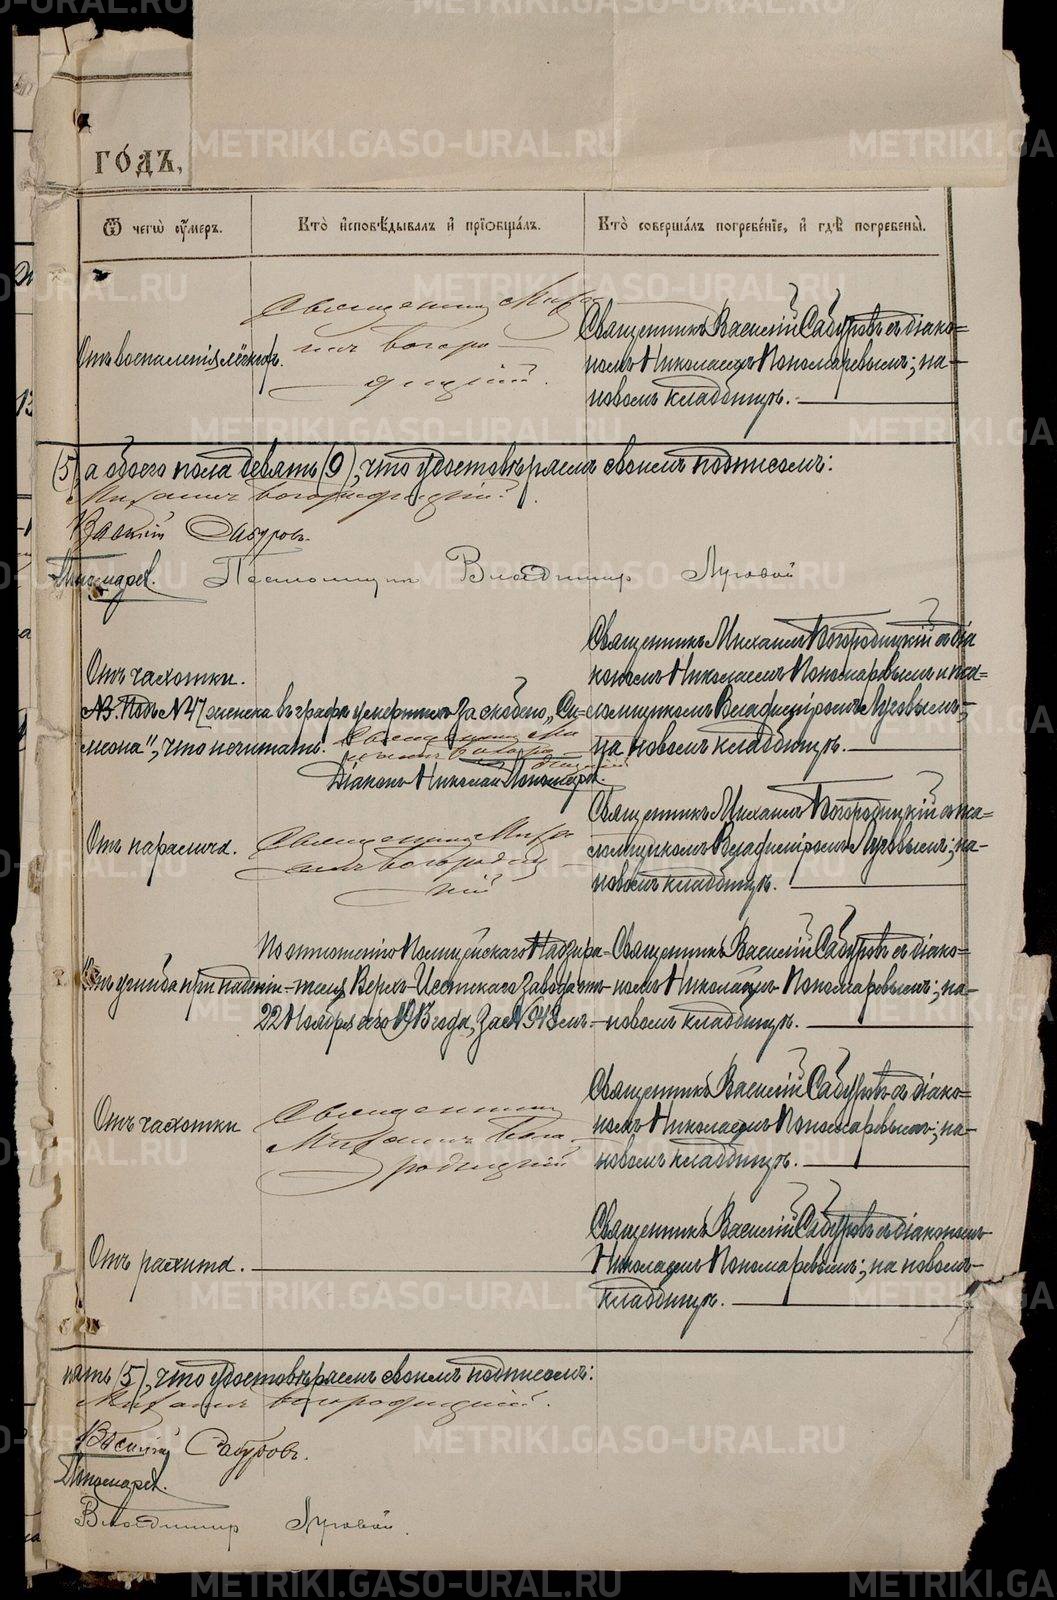 METRIKI.GASO-URAL.RU
ГОДЪ,
Ѿ чегѡ ᲂу҆меръ.
Кто̀ и҆сповѣ́дывалъ и҆ прїѻбща́лъ.
Кто̀ соверша́лъ погребе́нїе, и҆ гдѣ̀ погребены̀.
Отъ воспаленія лёгкихъ.
Священникъ Миха-
илъ Богоро-
дицкій.
Священникъ Василій Сабуровъ съ діако-
номъ Николаемъ Пономаревымъ; на
новомъ кладбищѣ.
(5), а обоего пола девять (9), что удостовѣряемъ своимъ подписомъ:
Михаилъ Богородицкій.
Василій Сабуровъ.
Пономаревъ. Псаломщикъ Владимиръ Луговой
Отъ чахотки.
NB. Подъ № 47 женска въ графѣ умершихъ за скобено „Си-
меона", что не читать. Священникъ Ми-
хаилъ Богоро-
дицкій
Діаконъ Николай Пономаревъ.
Священникъ Михаилъ Богородицкій съ діа
кономъ Николаемъ Пономаревымъ и пса-
ломщикомъ Владиміромъ Луговымъ;
на новомъ кладбищѣ.
Отъ паралича.
Священникъ Миха-
илъ Богородиц-
кій
Священникъ Михаилъ Богородицкій съ пса-
ломщикомъ Владиміромъ Луговымъ; на-
новомъ кладбищѣ.
Отъ ушиба при паденіи
По отношенію Полицейскаго Надзира-
теля Верхъ-Исетскаго Завода отъ
22 Ноября сего 1915 года, за №
Священникъ Василій Сабуровъ съ діако-
номъ Николаемъ Пономаревымъ; на-
новомъ кладбищѣ.
Отъ чахотки
Священникъ
Михаилъ Бого-
родицкій
Священникъ Василій Сабуровъ съ діако-
номъ Николаемъ Пономаревымъ; на-
новомъ кладбищѣ.
Отъ рахита.
Священникъ Василій Сабуровъ съ діакономъ
Николаемъ Пономаревымъ; на новомъ
кладбищѣ.
пять (5), что удостовѣряемъ своимъ подписомъ:
Михаилъ Богородицкій.
Василій Сабуровъ.
Пономаревъ.
Владимиръ Луговой.